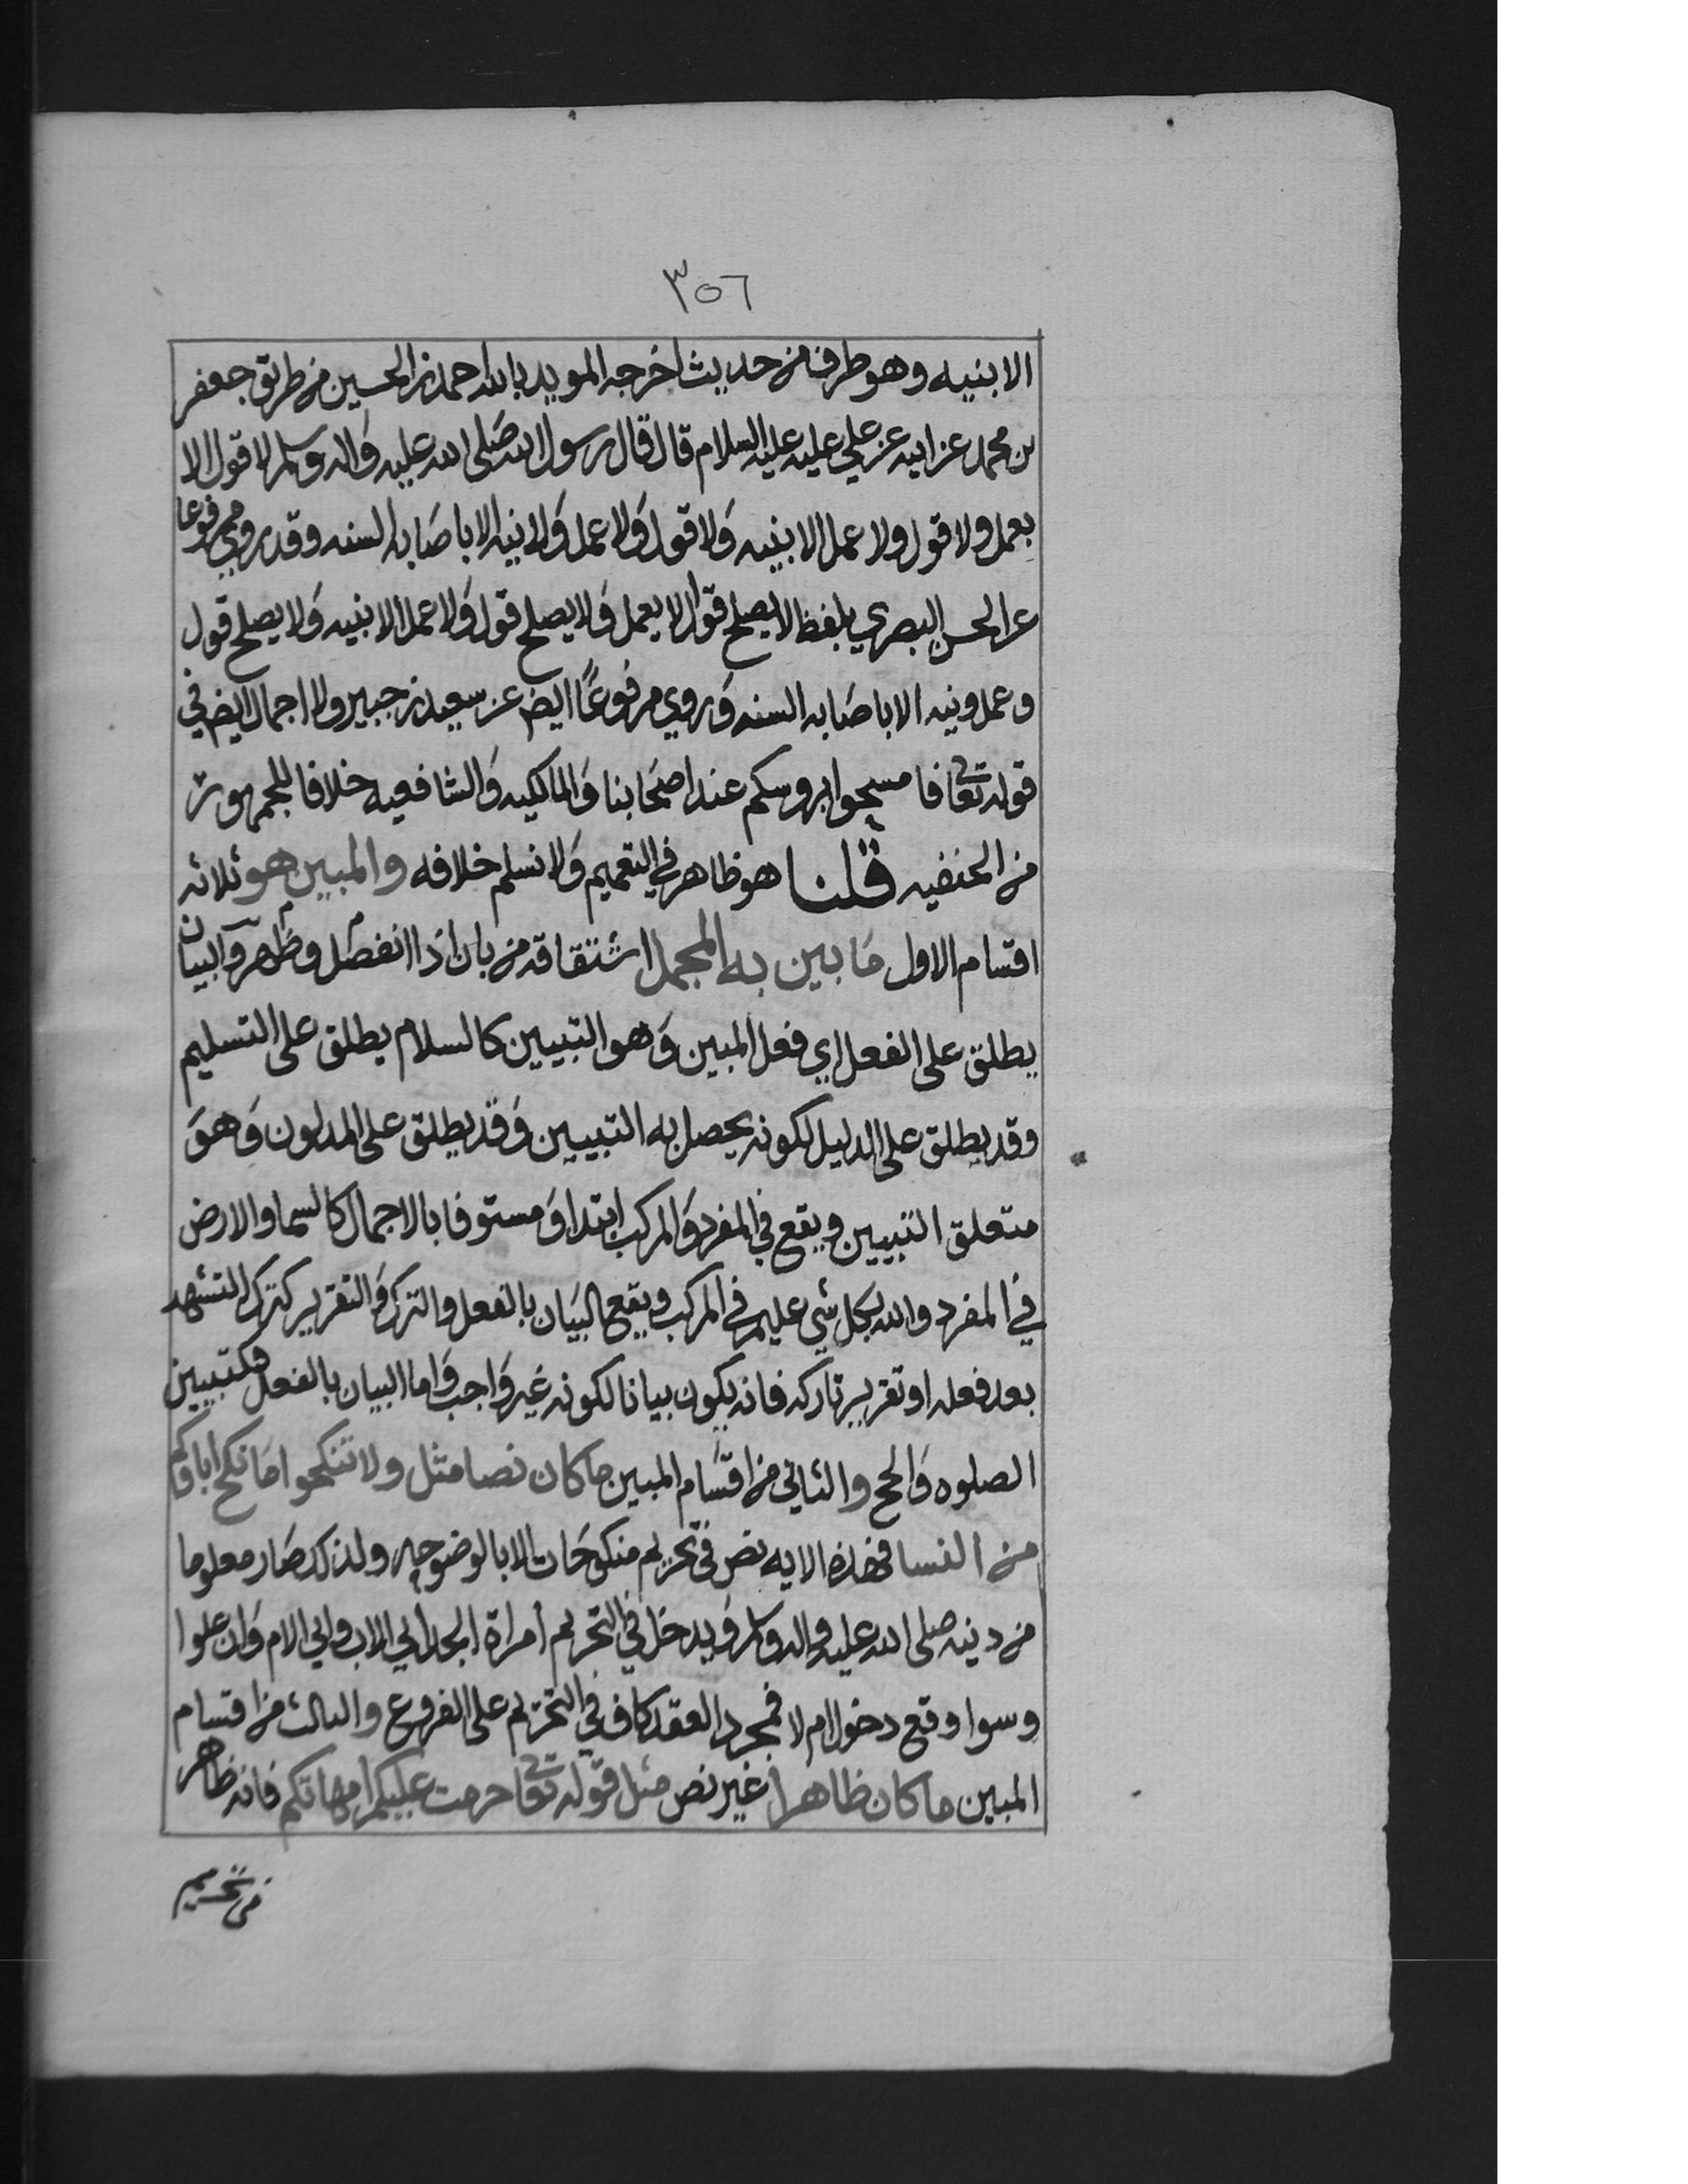 ٣٥٦
الابنيه وهو طرف من حديث اخرجه المويد بالله احمد بن الحسين من طريق جعفر
بن محمد عن ابيه عن علي عليه عليه السلام قال قال رسول الله صلى الله عليه واله وسلم لا قول الا
بعمل ولا قول ولا عمل الا بنيه ولا قول ولا عمل ولا نيه الا باصابه السنه وقد روي مرفوعا
عن الحسن البصري بلفظ لا يصلح قول الا بعمل ولا يصلح قول ولا عمل الا بنيه ولا يصلح قول
وعمل ونيه الا باصابه السنه وروي مرفوعًا ايض عن سعيد بن جبير ولا اجمال ايض في
قوله تعا فامسحوا بروسكم عند اصحابنا والمالكيه والشافعيه خلافا للجمهور
من الحنفيه قلنا هو ظاهر في التعميم ولا نسلم خلافه والمبين هو ثلاثه
اقسام الاول ما بين به المجمل اشتقاقه من بان اذا انفصل وظهر والبيان
يطلق على الفعل اي فعل المبين وهو التبيين كالسلام يطلق على التسليم
وقد يطلق على الدليل لكونه يحصل به التبيين وقد يطلق على المدلول وهو
متعلق التبيين ويقع في المفرد والمركب ابتدا ومستوفا بالاجمال كالسما والارض
في المفرد والله بكل شي عليم في المركب ويقع البيان بالفعل والترك والتقرير كترك التشهد
بعد فعله او تقرير تاركه فانه يكون بيانا لكونه غير واجب واما البيان بالفعل فكتبيين
الصلوه والحج والثاني من اقسام المبين ما كان نصا مثل ولا تنكحوا ما نكح اباوكم
من النسا فهذه الايه نص في تحريم منكوحات الابا لوضوحه ولذلك صار معلوما
من دينه صلى الله عليه واله وسلم ويدخل في التحريم امراة الجد ابي الاب وابي الام وان علوا
وسوا وقع دخول ام لا فمجرد العقد كاف في التحريم على الفروع والثالث من اقسام
المبين ما كان ظاهرا غير نص مثل قوله تعا حرمت عليكم امهاتكم فانه ظاهر
في تحريم